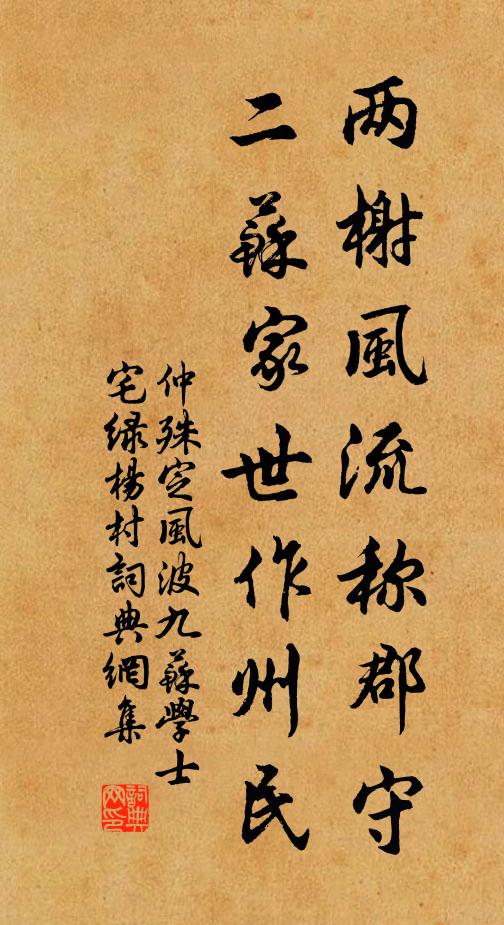 两榭風流称郡守
二蘇家世作州民
仲殊定風波九蘇學士
宅緑楊村詞典網集
詞典網印